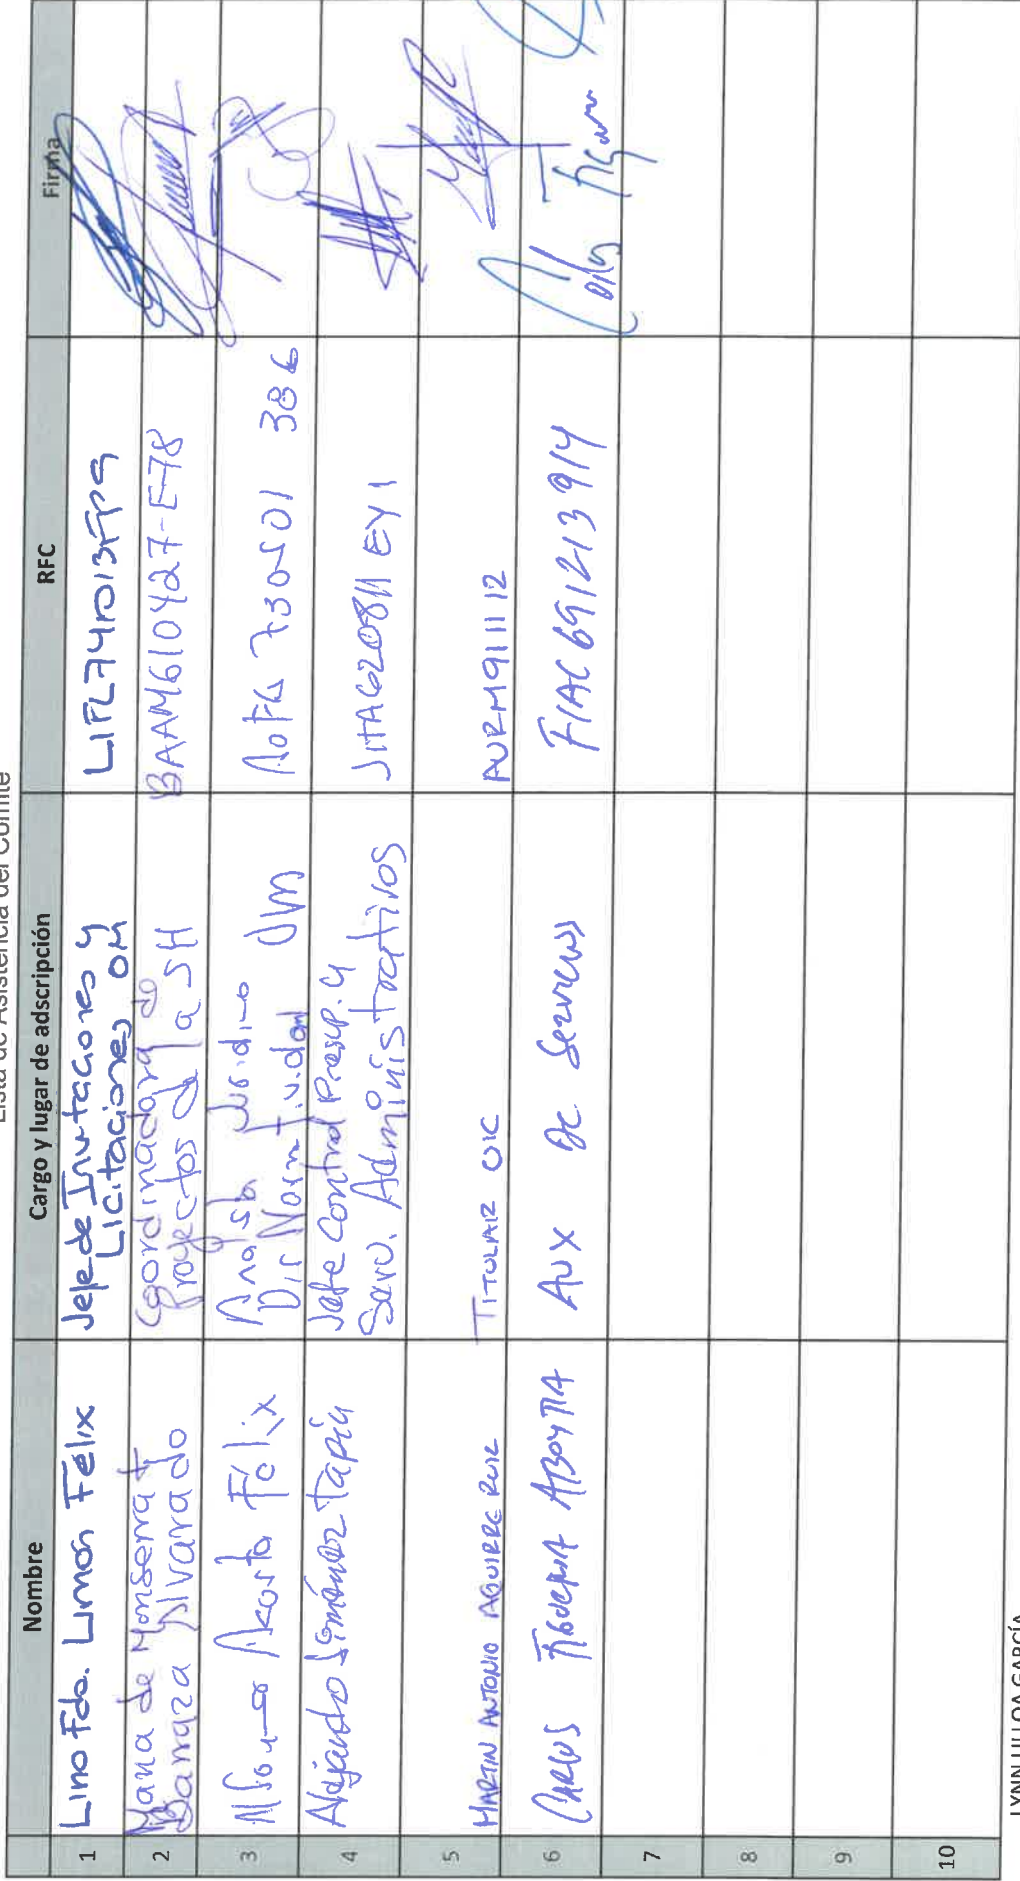 Lista de Asistencia del Comité
Nombre Cargo y lugar de adscripción RFC Firma
1 Lino Fdo. Limón Félix Jefe de Invitaciones y
Licitaciones OM LIFL741013FP9
2 Maria de Monserrat
Barraza Alvarado Coordinadora de
Proyectos de la SH BAAM610427-E78
3 Acosta Félix Jurídico
Dir Normatividad OM 730501 386
4 Alejandro Jiménez Tapia Jefe Control Presup. y
Serv. Administrativos JITA620811EY1
5 MARTIN ANTONIO AGUIRRE RUIZ TITULAR OIC AURM911112
6 CARLOS FIGUEROA ABOYTIA AUX DE Servicios FIAC691213914
7
8
9
10
LYNN ULLOA GARCÍA